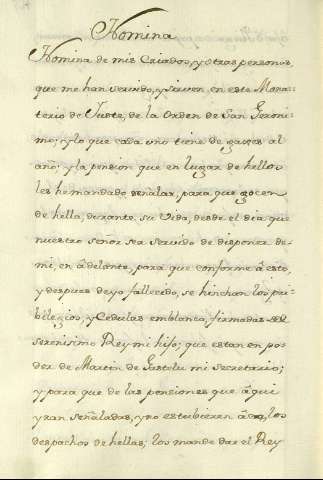 Nomina
Nomina de mis Criados, y otras personas,
que me han servido, y sirven en este Monas-
terio de Juste, de la Orden de San Geroni-
mo; y lo que cada uno tiene de gages al
año; y la pension que en lugar de hellos
les he mandado señalar, para que gocen
de hella, durante su Vida, desde el dia que
nuestro señor sea servido de disponer de
mi, en âdelante, para que conforme â esto,
y despues de yo fallecido, se hinchan los pri-
bilegios, y Cedulas emblanco, firmadas del
serenisimo Rey mi hijo; que estan en po-
der de Martin de Gastelu mi secretario;
y para que de las pensiones que âqui
yran señaladas, y no estubieren los
despachos de hellas; los mande dar el Rey